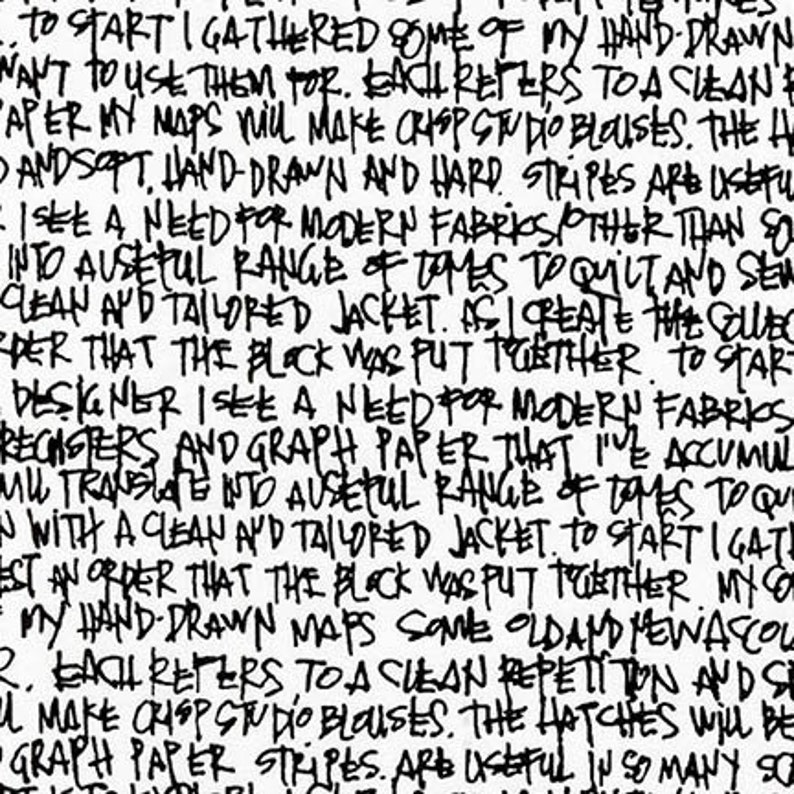 TO START I GATHERED SOME OF MY HAND-DRAWN
WANT TO USE THEM FOR. EACH REFERS TO A CLEAN
PAPER MY MAPS WILL MAKE CRISP STUDIO BLOUSES. THE
AND SOFT. HAND-DRAWN AND HARD. STRIPES ARE USEFUL
I SEE A NEED FOR MODERN FABRICS/OTHER THAN
INTO A USEFUL RANGE OF TOMES TO QUILT AND SEW
CLEAN AND TAILORED JACKET. AS I CREATE THE COLLEC
RDER THAT THE BLOCK WAS PUT TOGETHER. TO START
DESIGNER I SEE A NEED FOR MODERN FABRICS
AND GRAPH PAPER THAT I'VE ACCUMUL
WILL TRANSLATE INTO A USEFUL RANGE OF TOMES TO QU
N WITH A CLEAN AND TAILORED JACKET. TO START I GATH
EST AN ORDER THAT THE BLOCK WAS PUT TOGETHER. MY
MY HAND-DRAWN MAPS SOME OLD AND NEW AS COU
R. EACH REFERS TO A CLEAN REPETITION AND
L MAKE CRISP STUDIO BLOUSES. THE HATCHES WILL BE
GRAPH PAPER STRIPES. ARE USEFUL IN SO MANY